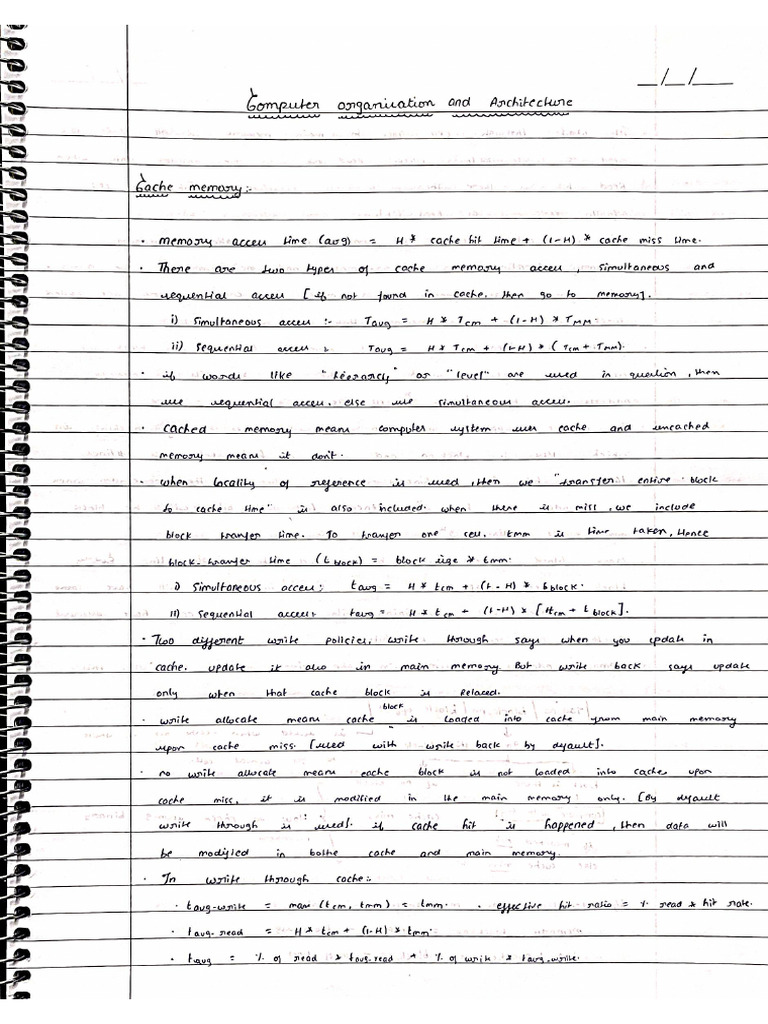 _/_/__
Computer organization and Architecture
Cache memory:-
· memory access time (avg) = H * cache hit time + (1-H) * cache miss time.
· There are two types of cache memory access, simultaneous and
sequential access [if not found in cache, then go to memory].
i) Simultaneous access :- Tavg = H * Tcm + (1-H) * TMM.
ii) Sequential access :- Tavg = H * Tcm + (1-H) * (Tcm + TMM).
· if words like "hierarchy" or "level" are used in question, then
use sequential access, else use simultaneous access.
· Cached memory means computer system uses cache and uncached
memory means it don't.
· when locality of reference is used, then we "transfer entire block
to cache time" is also included. when there is miss, we include
block transfer time. To transfer one cell, tmm is time taken, Hence
block-transfer time (t block) = block size * tmm.
i) Simultaneous access: tavg = H * tcm + (1-H) * tblock.
ii) Sequential access: tavg = H * tcm + (1-H) * [tcm + tblock].
· Two different write policies, write through says when you update in
cache, update it also in main memory. But write back says update
only when that cache block is Relaced.
· write allocate means cache block is loaded into cache from main memory
upon cache miss. [used with write back by default].
· no write allocate means cache block is not loaded into cache upon
cache miss, it is modified in the main memory only. [By default
write through is used]. if cache hit is happened, then data will
be modified in bothe cache and main memory.
· In write through cache:-
· tavg-write = max (tcm, tmm) = tmm. · effective hit ratio = % read * hit rate.
· tavg-read = H * tcm + (1-H) * tmm.
· tavg = % of read * tavg-read + % of write * tavg-write.